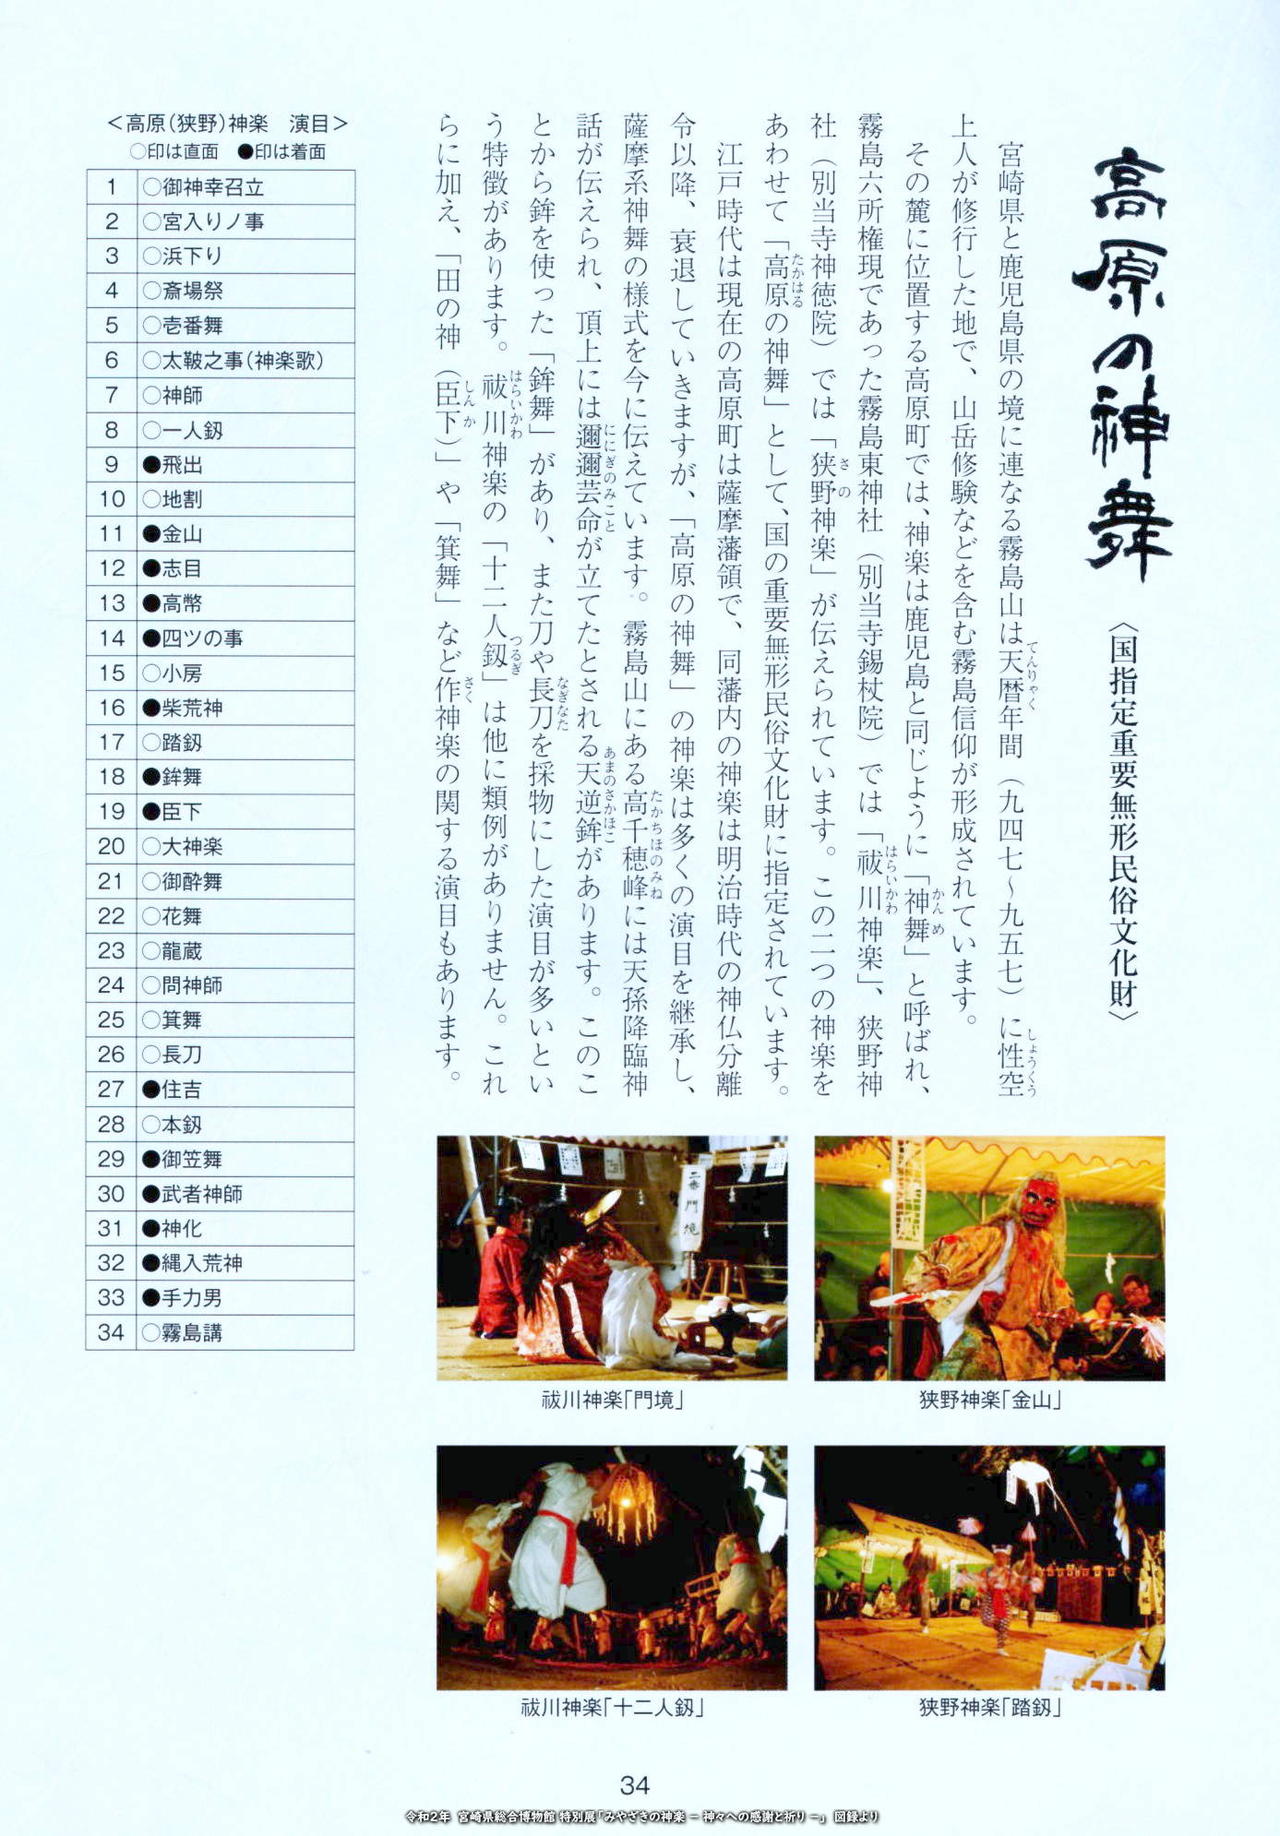 高原の神舞
〈国指定重要無形民俗文化財〉
宮崎県と鹿児島県の境に連なる霧島山は天暦年間（九四七～九五七）に性空
てんりゃく
しょうくう
上人が修行した地で、山岳修験などを含む霧島信仰が形成されています。
その麓に位置する高原町では、神楽は鹿児島と同じように「神舞」と呼ばれ、
かんめ
霧島六所権現であった霧島東神社（別当寺錫杖院）では「祓川神楽」、狭野神
はらいかわ
社（別当寺神徳院）では「狭野神楽」が伝えられています。この二つの神楽を
さの
あわせて「高原の神舞」として、国の重要無形民俗文化財に指定されています。
たかはる
江戸時代は現在の高原町は薩摩藩領で、同藩内の神楽は明治時代の神仏分離
令以降、衰退していきますが、「高原の神舞」の神楽は多くの演目を継承し、
薩摩系神舞の様式を今に伝えています。霧島山にある高千穂峰には天孫降臨神
たかちほのみね
話が伝えられ、頂上には邇邇芸命が立てたとされる天逆鉾があります。このこ
ににぎのみこと
あまのさかほこ
とから鉾を使った「鉾舞」があり、また刀や長刀を採物にした演目が多いとい
なぎなた
う特徴があります。祓川神楽の「十二人釼」は他に類例がありません。これ
はらいかわ
つるぎ
らに加え、「田の神（臣下）」や「箕舞」など作神楽の関する演目もあります。
しんか
さく
＜高原（狭野）神楽　演目＞
○印は直面　●印は着面
1 ○御神幸召立
2 ○宮入りノ事
3 ○浜下り
4 ○斎場祭
5 ○壱番舞
6 ○太鞁之事（神楽歌）
7 ○神師
8 ○一人釼
9 ●飛出
10 ○地割
11 ●金山
12 ●志目
13 ●高幣
14 ●四ツの事
15 ○小房
16 ●柴荒神
17 ○踏釼
18 ●鉾舞
19 ●臣下
20 ○大神楽
21 ○御酔舞
22 ○花舞
23 ○龍蔵
24 ○問神師
25 ○箕舞
26 ○長刀
27 ●住吉
28 ○本釼
29 ●御笠舞
30 ●武者神師
31 ●神化
32 ●縄入荒神
33 ●手力男
34 ○霧島講
二番 門境
祓川神楽「門境」
狭野神楽「金山」
祓川神楽「十二人釼」
狭野神楽「踏釼」
34
令和2年 宮崎県総合博物館 特別展「みやざきの神楽 － 神々への感謝と祈り －」 図録より